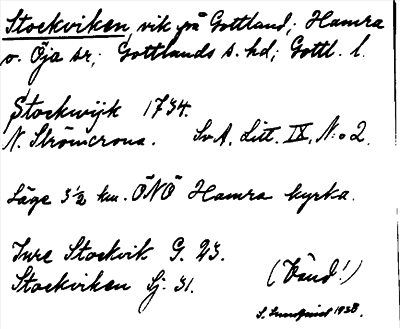 Stockviken, vik på Gottland; Hamra
o. Öja sr; Gottlands s. hd; Gottl. l.
Stockwijk 1734.
N. Strömcrona. Sv. A. Litt. IX, N:o 2.
Läge 3 1/2 km. ÖNÖ Hamra kyrka.
Inre Stockvik G. 23.
Stockviken Sj. 31.
(Vänd!)
S. 1938.